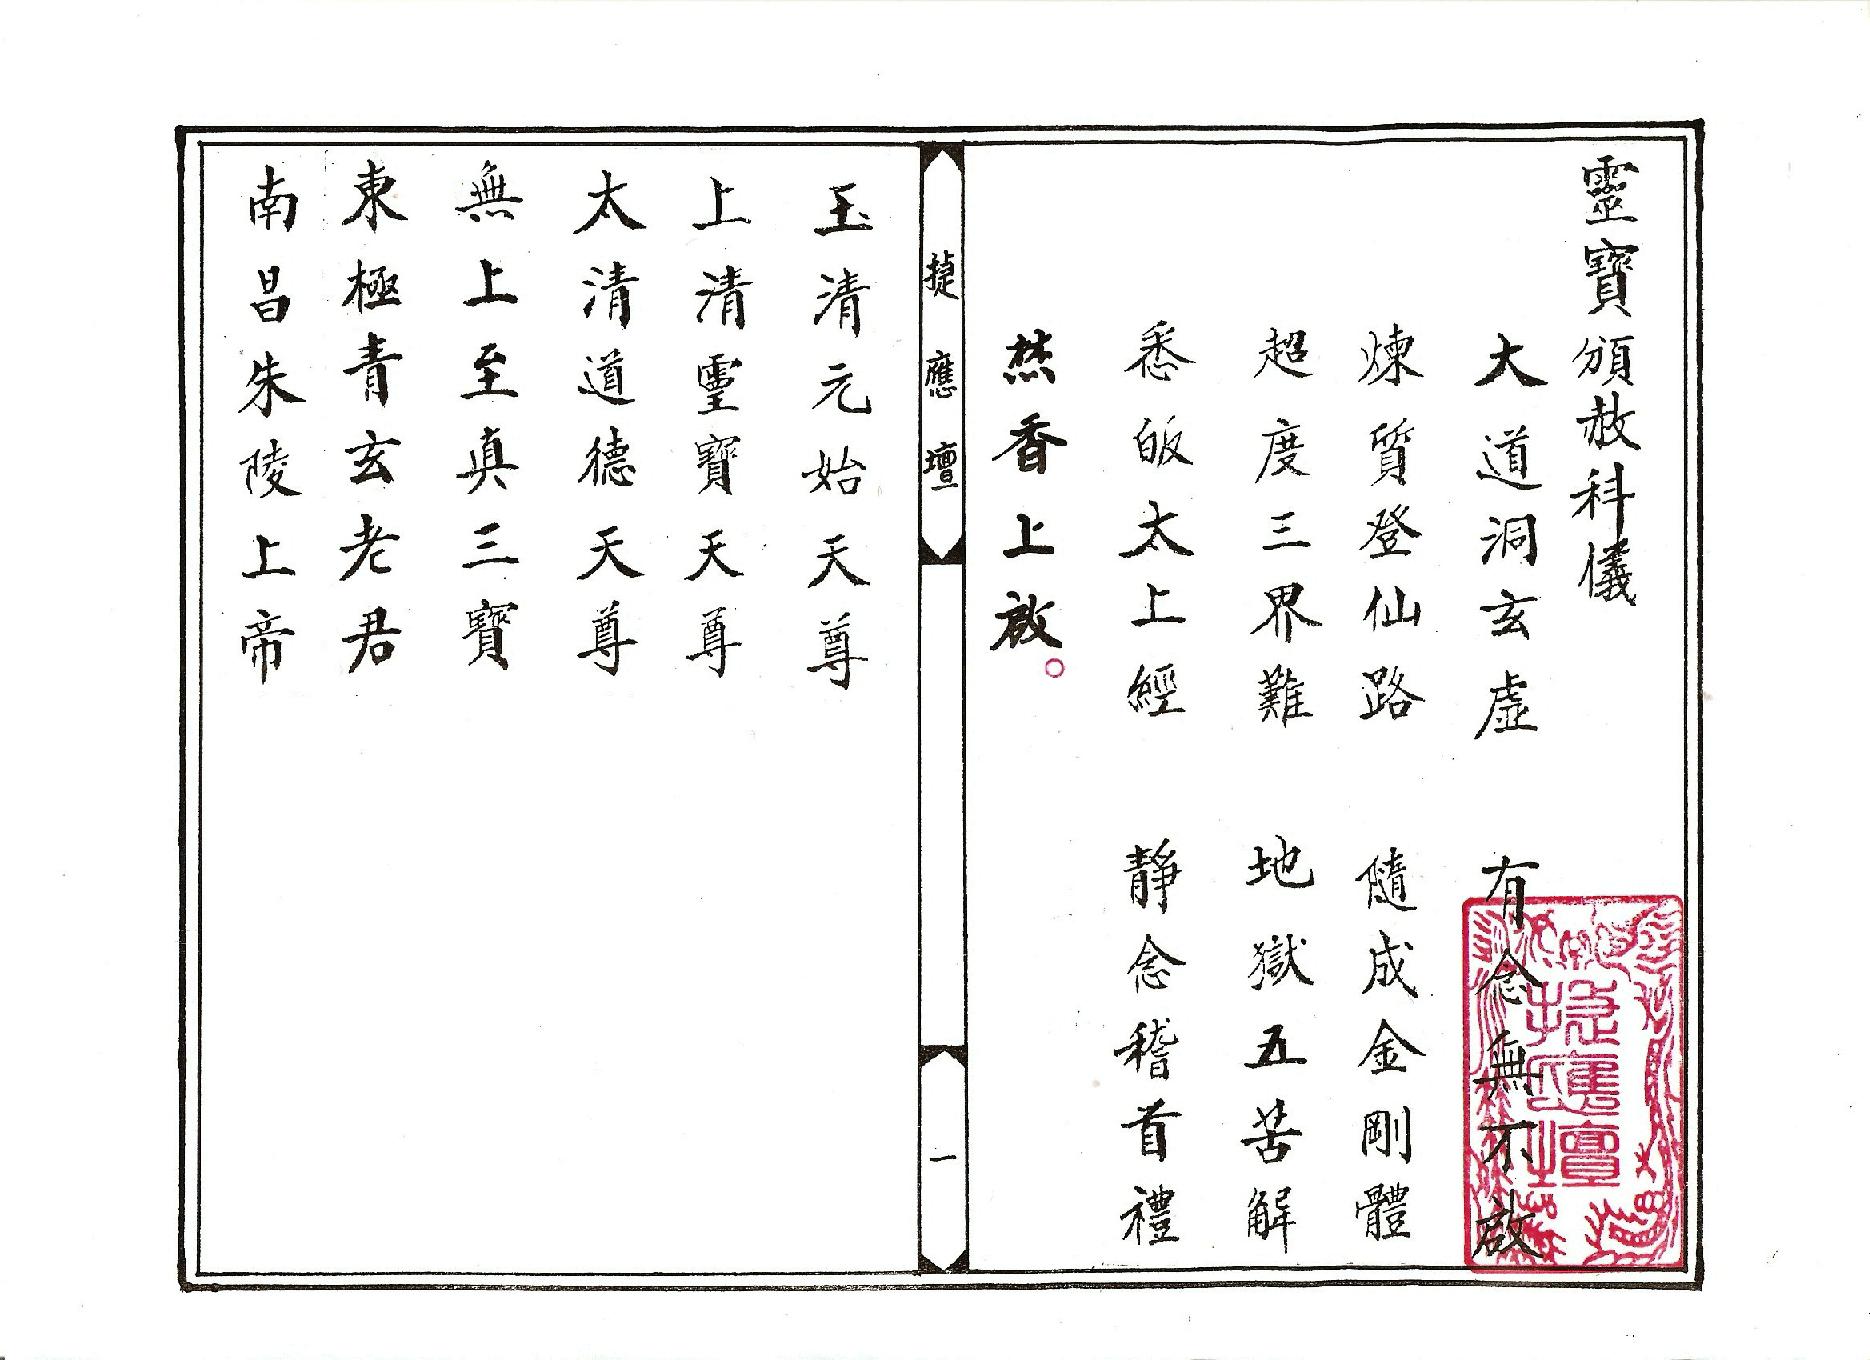 靈寶頒赦科儀
大道洞玄虛　有念無不啟
煉質登仙路　隨成金剛體
超度三界難　地獄五苦解
悉皈太上經　靜念稽首禮
焚香上啟。
捷應壇
一
玉清元始天尊
上清靈寶天尊
太清道德天尊
無上至真三寶
東極青玄老君
南昌朱陵上帝
捷應壇